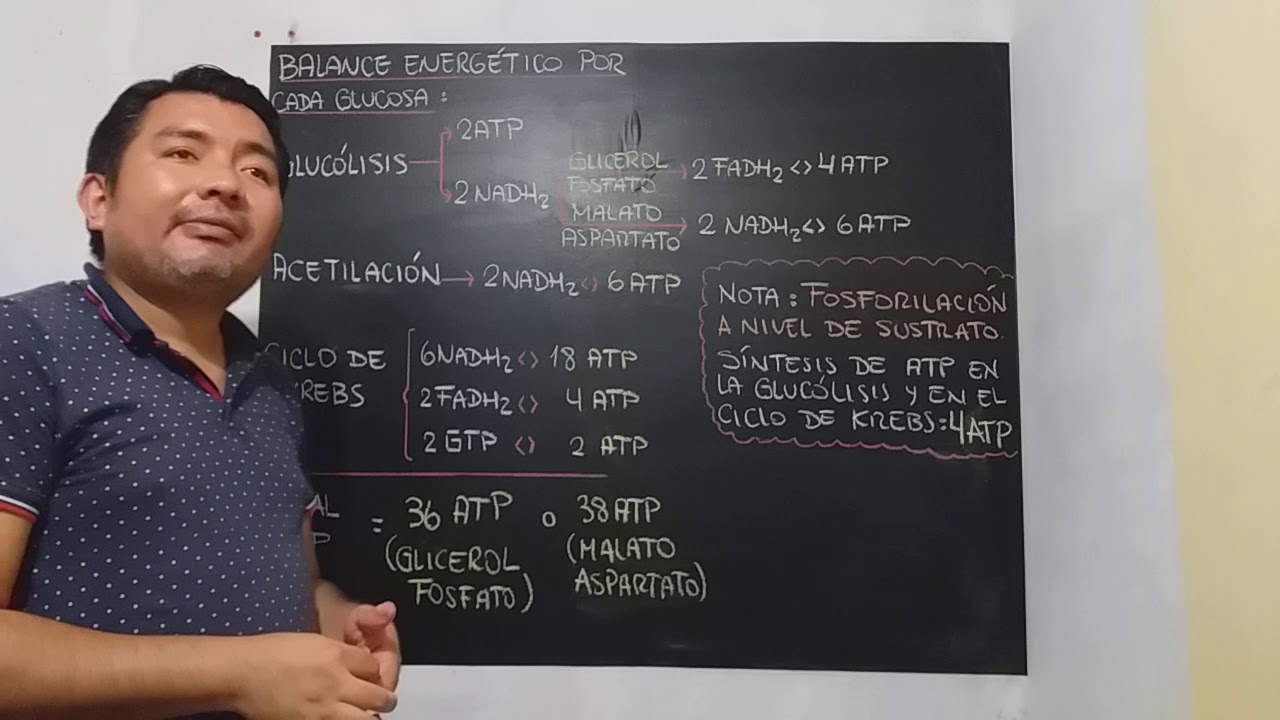 BALANCE ENERGÉTICO POR
CADA GLUCOSA :
GLUCÓLISIS
2ATP
2 NADH₂
GLICEROL
FOSFATO
2 FADH₂ <> 4 ATP
MALATO
ASPARTATO
2 NADH₂ <> 6 ATP
ACETILACIÓN → 2NADH₂ <> 6 ATP
CICLO DE
KREBS
6NADH₂ <> 18 ATP
2 FADH₂ <> 4 ATP
2 GTP <> 2 ATP
NOTA : FOSFORILACIÓN
A NIVEL DE SUSTRATO.
SÍNTESIS DE ATP EN
LA GLUCÓLISIS Y EN EL
CICLO DE KREBS: 4 ATP
= 36 ATP o 38 ATP
(GLICEROL
FOSFATO)
(MALATO
ASPARTATO)